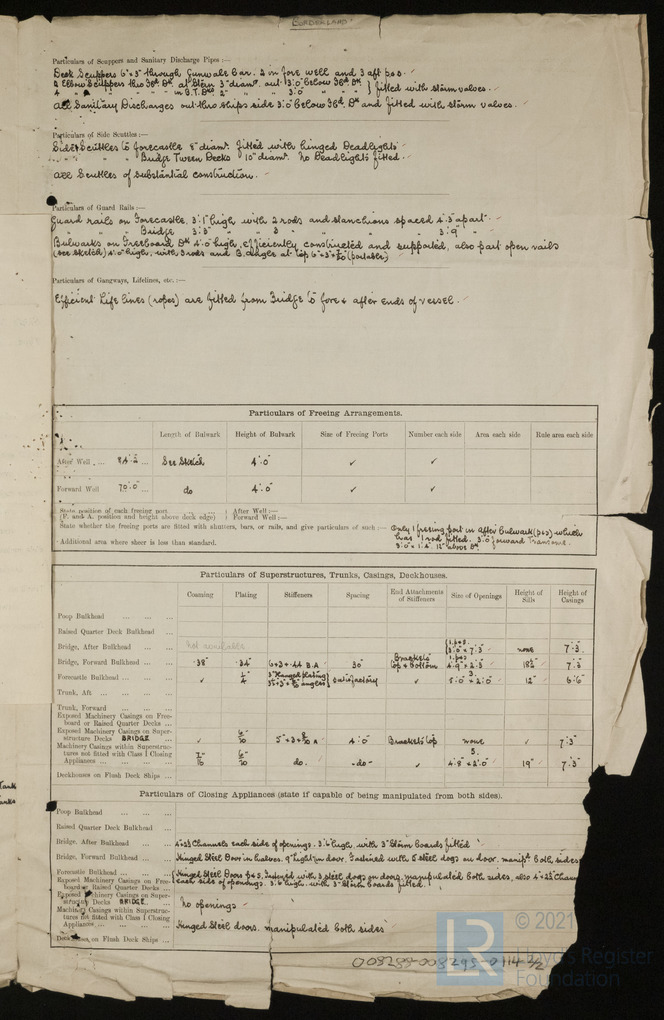 'BORDERLAND'
Particulars of Scuppers and Sanitary Discharge Pipes :—
Deck Scuppers 6"×3" through Gunwale bar. 2 in fore well and 3 aft p&s.
2 Elbow Scuppers thro Fbd. Dk at Stern 3" diamr. out 1'3'.0" below Fbd. Dk } fitted with storm valves.
4 " " " " in B.T. Dks 2" " 3'.0" " " "
All Sanitary Discharges out thro ships side 3'.0" below Fbd. Dk and fitted with storm valves.
Particulars of Side Scuttles :—
Side Scuttles to forecastle 8" diamr. fitted with hinged Deadlights
" " " Bridge Tween Decks 10" diamr. No Deadlights fitted.
All Scuttles of substantial construction.
Particulars of Guard Rails :—
Guard rails on Forecastle. 3'.1" high with 2 rods and stanchions spaced 4'.3" apart
" " " Bridge 3'.3" " 3 " " " 3'.9" "
Bulwarks on Freeboard Dk 4'.0" high, efficiently constructed and supported, also part open rails
(see sketch) 4'.0" high, with 3 rods and B. Angle at top (portable)
Particulars of Gangways, Lifelines, etc. :—
Efficient Life lines (ropes) are fitted from Bridge to fore & after ends of vessel.
Particulars of Freeing Arrangements.
Length of Bulwark Height of Bulwark Size of Freeing Ports Number each side Area each side Rule area each side
After Well ... 84'.2 ... See Sketch 4'.0" ✓ ✓
Forward Well 70'.0 ... do 4'.0" ✓ ✓
State position of each freeing port. } After Well :—
(F. and A. position and height above deck edge) } Forward Well :—
State whether the freeing ports are fitted with shutters, bars, or rails, and give particulars of such :— Only 1 freeing port in after bulwark (p&s) which
has 1 rod fitted. 3'.0" forward Transome.
Additional area where sheer is less than standard. 3'.0" × 1'.4". 12" above Dk.
Particulars of Superstructures, Trunks, Casings, Deckhouses.
Coaming Plating Stiffeners Spacing End Attachments of Stiffeners Size of Openings Height of Sills Height of Casings
Poop Bulkhead ... ... ...
Raised Quarter Deck Bulkhead ...
Bridge, After Bulkhead ... ... not available 1. p&s. 3'.0" × 7'.3" none 7'.3"
Bridge, Forward Bulkhead ... ... .38" .34" 6×3×.44 B.A 30" Brackets top & bottom 1. p&s 4'.9" × 2'.3" 18½" 7'.3"
Forecastle Bulkhead ... ... ... ✓ ¼" 3" flanged plating angles } Satisfactory ✓ 3. 5'.0" × 2'.0" 12" 6'.6"
Trunk, Aft ... ... ... ...
Trunk, Forward ... ... ...
Exposed Machinery Casings on Free-
board or Raised Quarter Decks ...
Exposed Machinery Casings on Super-
structure Decks BRIDGE ... ✓ 6/20" 5" × 3 × 8/20 A 4'.0" Brackets top none ✓ 7'.3"
Machinery Casings within Superstruc-
tures not fitted with Class I Closing
Appliances ... ... ... 7/20" 6/20" do. -do- ✓ 5. 4'.8" × 2'.0" 19" 7'.3"
Deckhouses on Flush Deck Ships ...
Particulars of Closing Appliances (state if capable of being manipulated from both sides).
Poop Bulkhead ... ... ...
Raised Quarter Deck Bulkhead ...
Bridge, After Bulkhead ... ... Channels each side of openings. 3'.6" high. with 3" Storm boards fitted
Bridge, Forward Bulkhead ... ... Hinged Steel Door in halves. 9" light in door. Fastened with 5 steel dogs on door. manipd. both sides
Forecastle Bulkhead ... ... ... Hinged Steel Doors p&s. fastened with 3 steel dogs on doors, manipulated both sides, also Chann
Exposed Machinery Casings on Free-
board or Raised Quarter Decks ... each side of openings. 3'.6" high. with 3" Storm boards fitted.
Exposed Machinery Casings on Super-
structure Decks BRIDGE ... No openings
Machinery Casings within Superstruc-
tures not fitted with Class I Closing
Appliances ... ... ... Hinged Steel doors. manipulated both sides
Deckhouses on Flush Deck Ships ...
008288-008295-0114 2/2
© 2021
LR
Lloyd's Register
Foundation